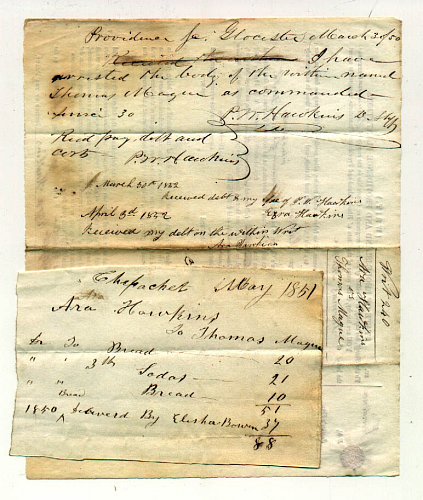 Providence Sc. Glocester March 30 50
I have
arrested the body of the within named
Thomas Magee as commanded
30
P. W. Hawkins D. Shff
Recd pay, debt and
cost P. W. Hawkins
March 30th 1852
Received debt & my fees of P. W. Hawkins
Ezra Hawkins
April 3d 1852
Received my debt on the within Writ
Ara Hawkins
Writ 240
Ara Hawkins
Thomas Magee
Chepachet May 1851
Ara Hawkins
To Thomas Magee
To Bread 20
" " 3 lb Sodas 21
" " Bread 10
51
1850 Bread Deliverd By Elisha Bowen 37
88